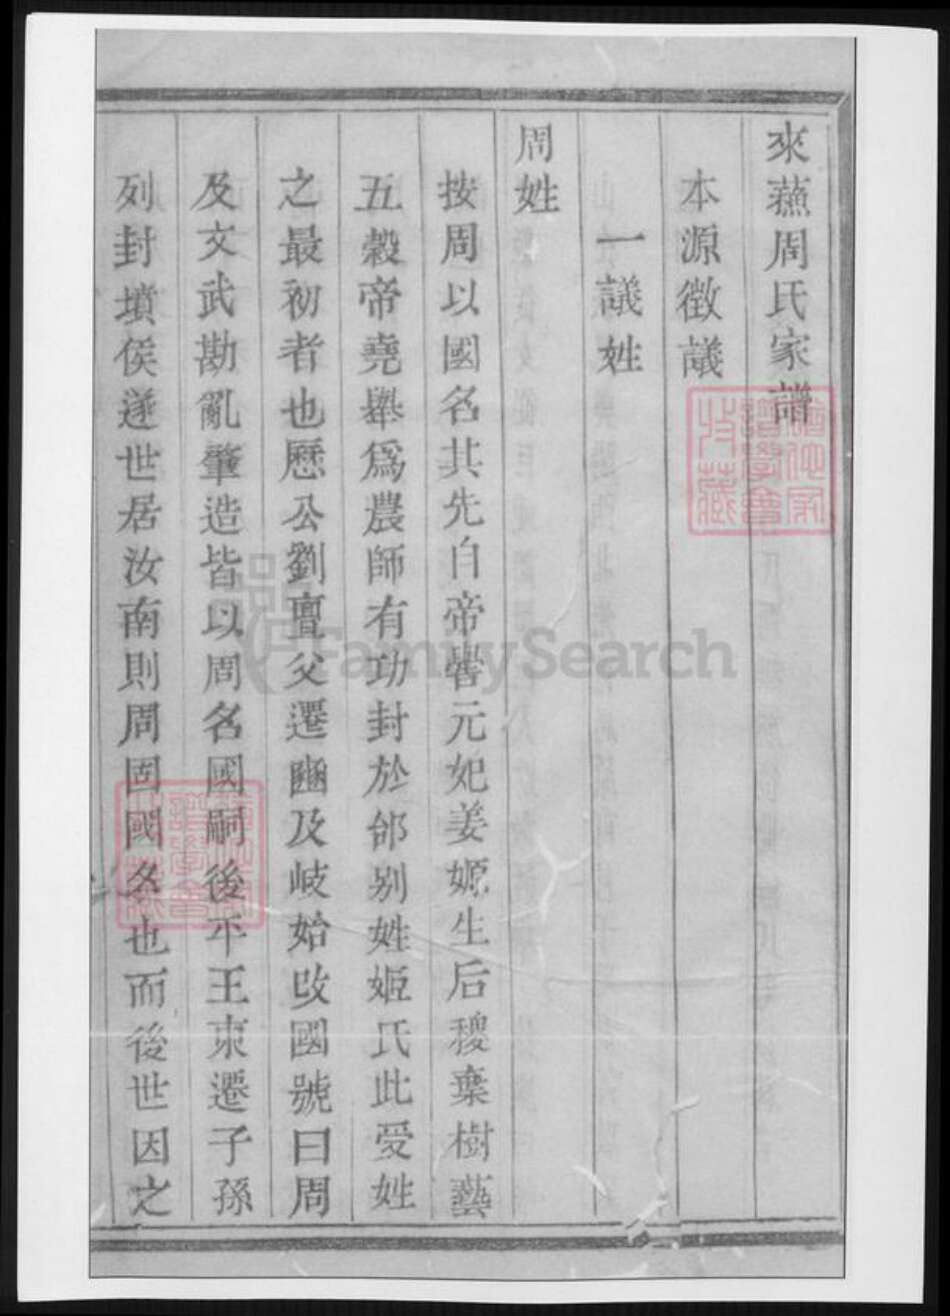 來蘓周氏家譜
本源徴議
一議姓
周姓
按周以國名其先自帝嚳元妃姜嫄生后稷棄樹藝
五穀帝堯舉爲農師有功封於邰别姓姬氏此受姓
之最初者也歷公劉亶父遷豳及岐始改國號曰周
及文武勘亂肇造皆以周名國嗣後平王東遷子孫
列封墳侯遂世居汝南則周固國名也而後世因之
FamilySearch
收藏
譜學會